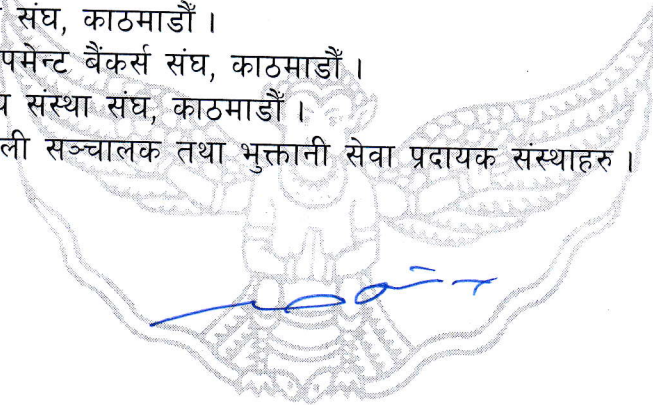 संघ, काठमाडौँ ।
पमेन्ट बैंकर्स संघ, काठमाडौँ ।
संस्था संघ, काठमाडौँ ।
ली सञ्चालक तथा भुक्तानी सेवा प्रदायक संस्थाहरु ।